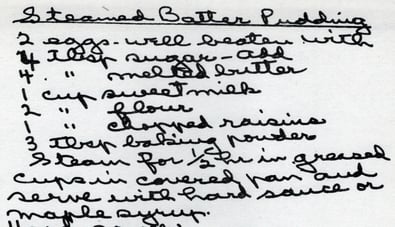 Steamed Batter Pudding
2 eggs - well beaten with
4 Tbsp sugar - add
4 " melted butter
1 cup sweet milk
2 " flour
1 " chopped raisins
3 Tbsp baking powder
Steam for 1/2 hr in greased
cups in covered pan and
serve with hard sauce or
maple syrup.